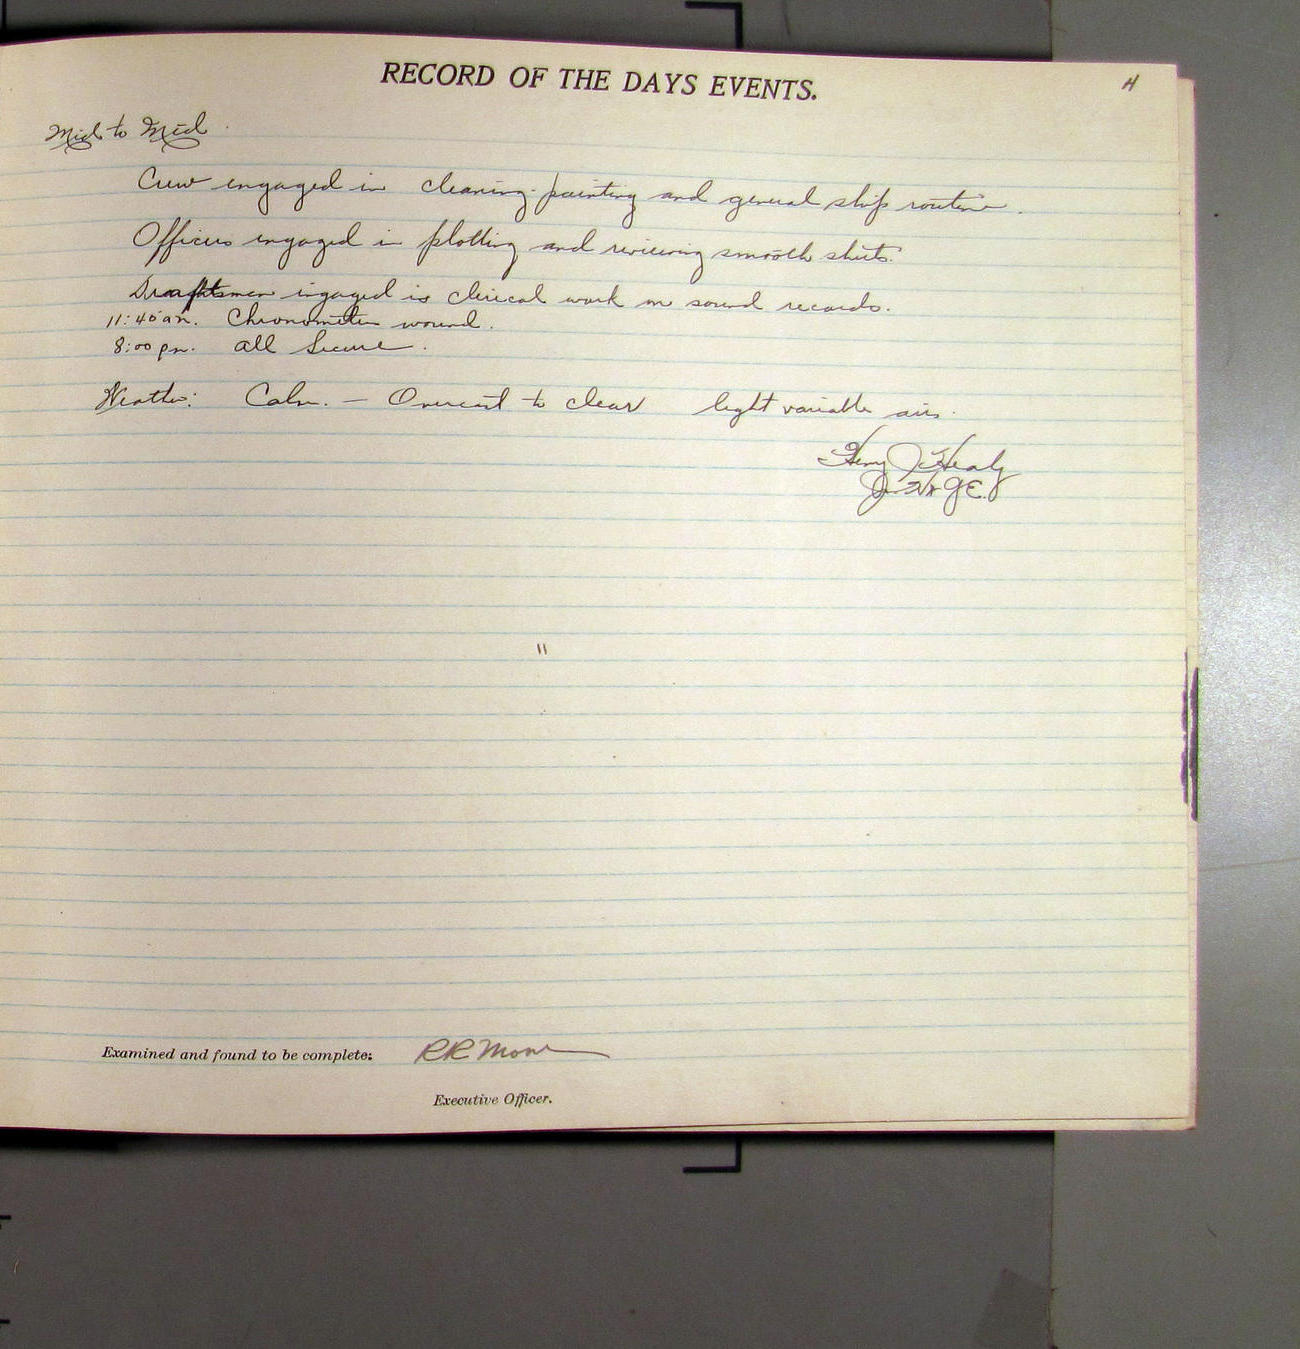 RECORD OF THE DAYS EVENTS.
H
Mid to Mid.
Crew engaged in cleaning-painting and general ship routine.
Officers engaged in plotting and reviewing smooth sheets.
Draftsmen engaged in clerical work on sound records.
11:45 am. Chronometer wound.
8:00 pm. All Secure.
Weather: Calm. — Overcast to clear light variable airs.
Henry J. Healy
Jr. H & G E.
"
Examined and found to be complete: RR Moore
Executive Officer.